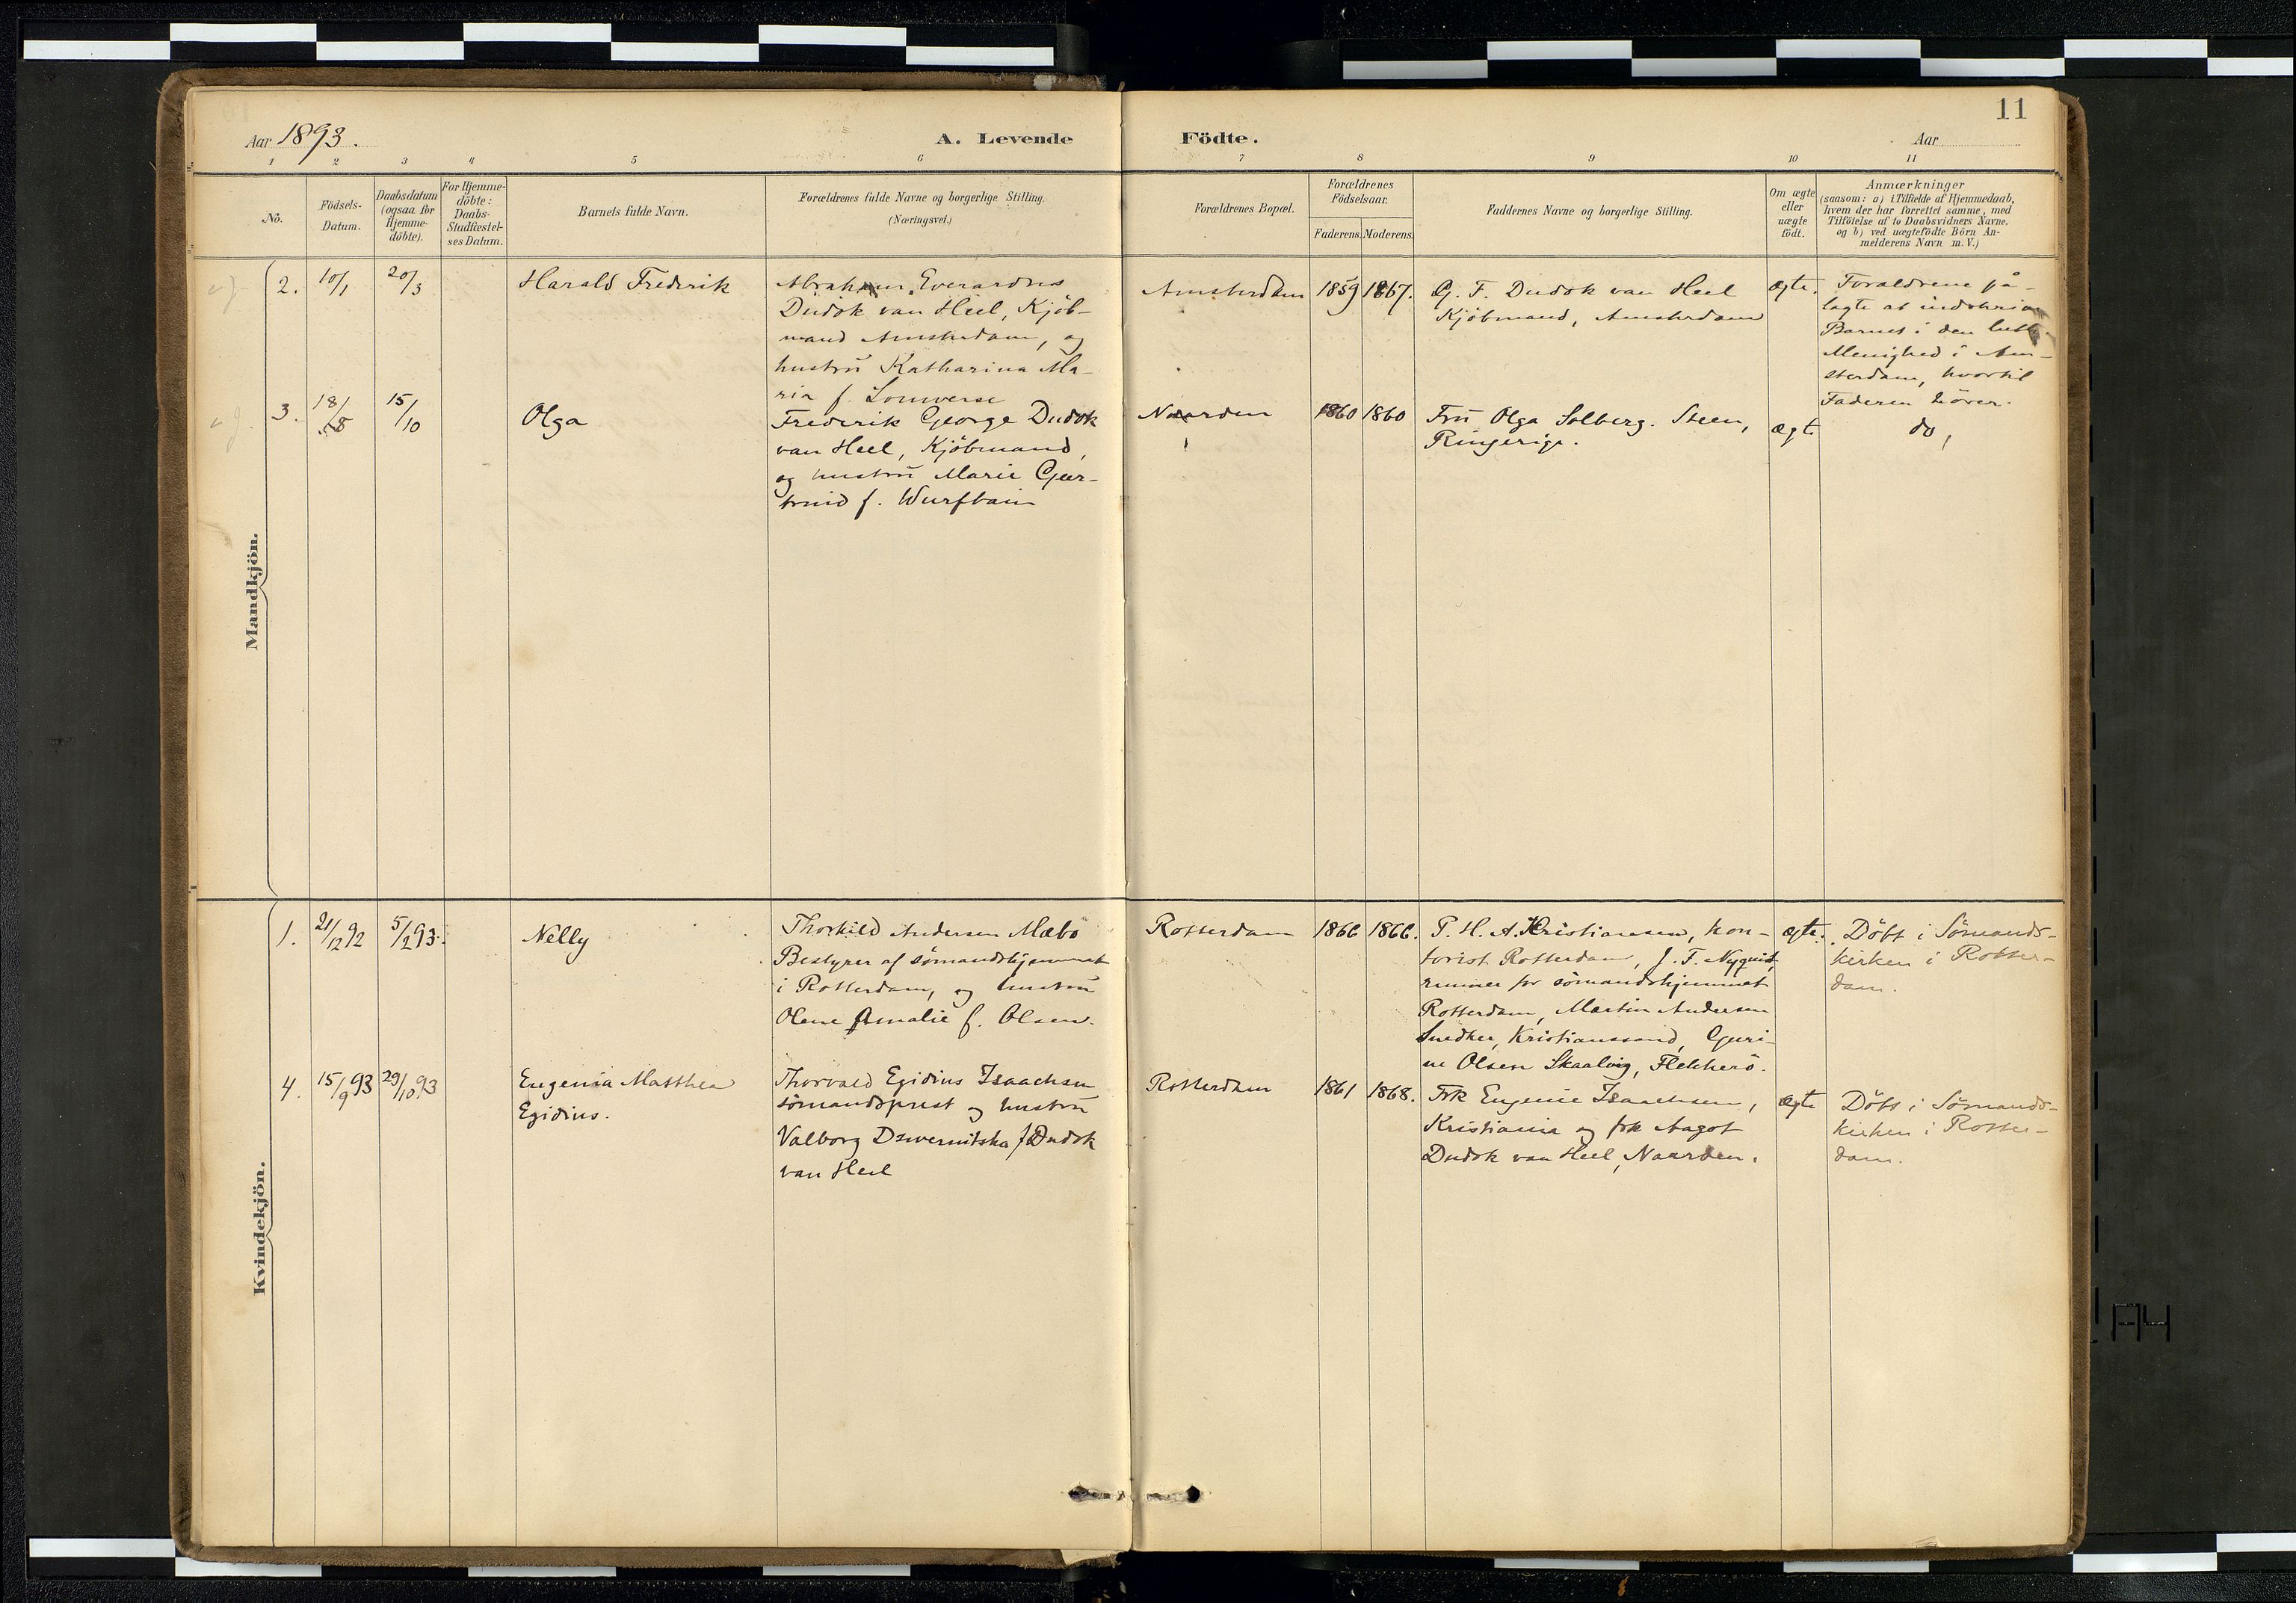 11
Aar 1893.
A. Levende Födte.
Aar
1 2 3 4 5 6 7 8 9 10 11
No.
Födsels-
Datum.
Daabsdatum
(ogsaa for
Hjemme-
döbte).
For Hjemme-
döbte:
Daabs-
Stadfæstel-
ses Datum.
Barnets fulde Navn.
Forældrenes fulde Navne og borgerlige Stilling.
(Næringsvei.)
Forældrenes Bopæl.
Forældrenes
Födselsaar.
Faderens. Moderens.
Faddernes Navne og borgerlige Stilling.
Om ægte
eller
uægte
födt.
Anmærkninger
(saasom: a) i Tilfælde af Hjemmedaab,
hvem der har forrettet samme, med
Tilföielse af to Daabsvidners Navne.
og b) ved uægtefödte Börn An-
melderens Navn m. V.)
Mandkjön.
2. 10/1 20/3
Harald Frederik
Abraham Everardus
Dudok van Heel, Kjöb-
mand Amsterdam, og
hustru Katharina Ma-
ria f.
Amsterdam
1859 1867.
G. F. Dudok van Heel
Kjöbmand, Amsterdam
ægte.
Foraldrene på-
lagte at indskrive
Barnet i den luth.
Menighed i Am-
sterdam, hvortil
Faderen hörer.
3. 18/8 15/10
Olga
Frederik George Dudok
van Heel, Kjöbmand,
og hustru Marie Geer-
truid f. Wurfbain
Naarden
1860 1860
Fru Olga Solberg. Steen,
Ringerige.
ægte
do,
Kvindekjön.
1. 21/12 92 5/2 93.
Nelly
Thorkild Andersen Mæbö
Bestyrer af sömandshjemmet
i Rotterdam, og hustru
Olene Amalie f. Olsen.
Rotterdam
1866 1866.
P. H. A. Kristiansen, kon-
torist Rotterdam, J. T. Nyquist,
runner for sömandshjemmet
Rotterdam, Martin Andersen
Snedker, Kristianssand, Guri-
ne Olsen Skaalvig, Flekkerö.
ægte.
Döbt i Sömands-
kirken i Rotter-
dam.
4. 15/9 93 29/10.93
Eugenia Matthea
Egidius.
Thorvald Egidius Isaachsen
sömandsprest og hustru
Valborg f Dudok
van Heel
Rotterdam
1861 1868.
Frk Eugenie Isaachsen,
Kristiania og frk Aagot
Dudok van Heel, Naarden.
ægte
Döbt i Sömands-
kirken i Rotter-
dam.